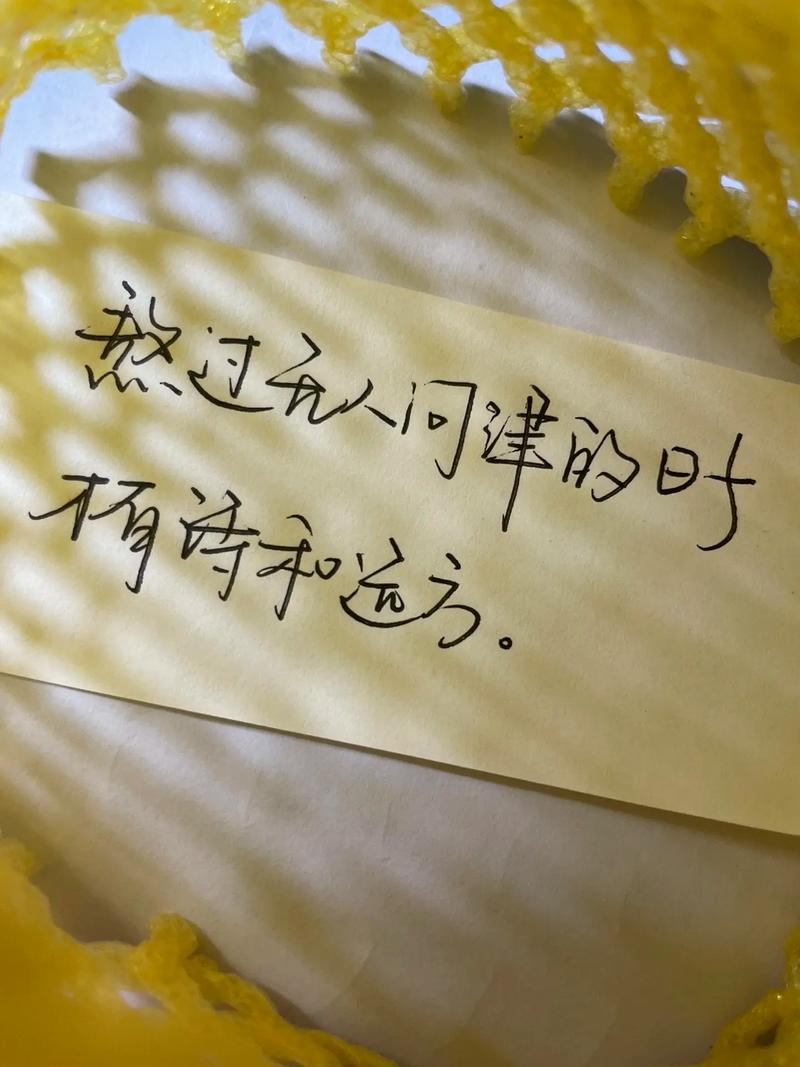 熬过无人问津的时
才有诗和远方。